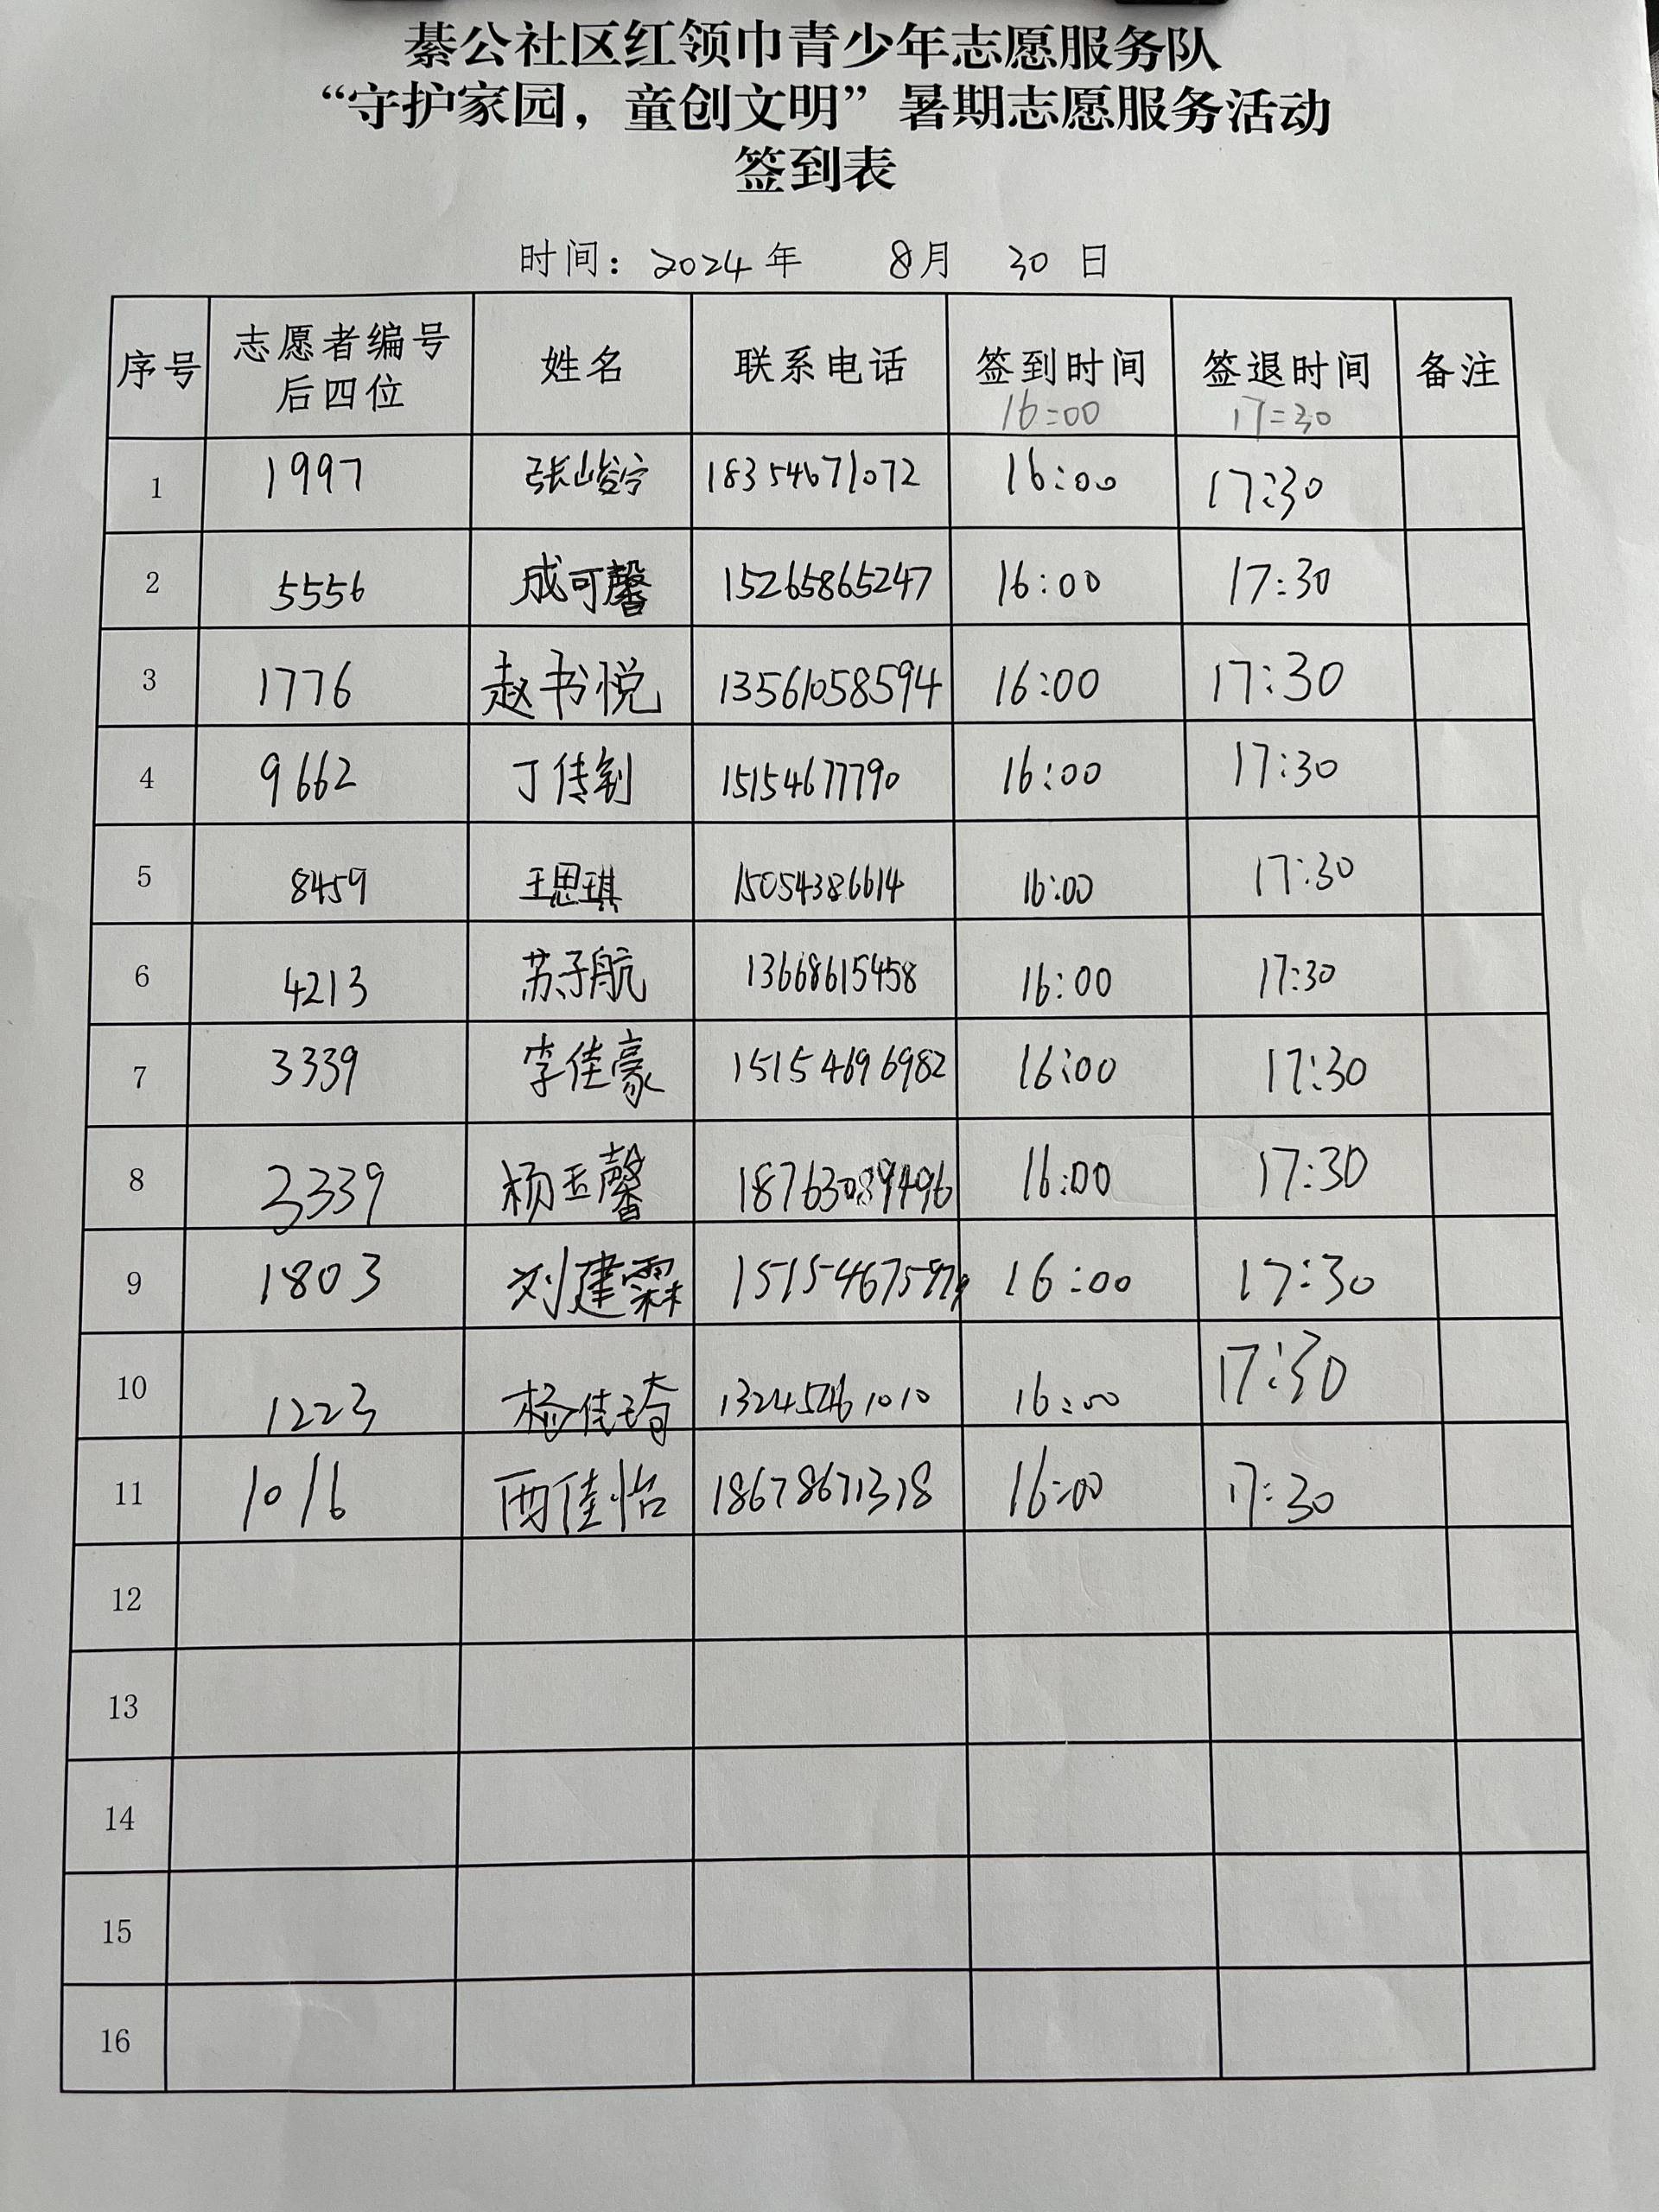 綦公社区红领巾青少年志愿服务队
“守护家园，童创文明”暑期志愿服务活动
签到表
时间：2024年 8月 30日
序号 志愿者编号后四位 姓名 联系电话 签到时间 签退时间 备注
16:00 17:30
1 1997 张峻宁 18354671072 16:00 17:30
2 5556 成可馨 15265865247 16:00 17:30
3 1776 赵书悦 13561058594 16:00 17:30
4 9662 丁传钊 15154677790 16:00 17:30
5 8459 王思琪 15054386614 16:00 17:30
6 4213 苏子航 13668615458 16:00 17:30
7 3339 李佳豪 15154696982 16:00 17:30
8 3339 杨玉馨 16:00 17:30
9 1803 刘建霖 16:00 17:30
10 1223 杨佳琦 16:00 17:30
11 1016 西佳怡 18678671318 16:00 17:30
12
13
14
15
16